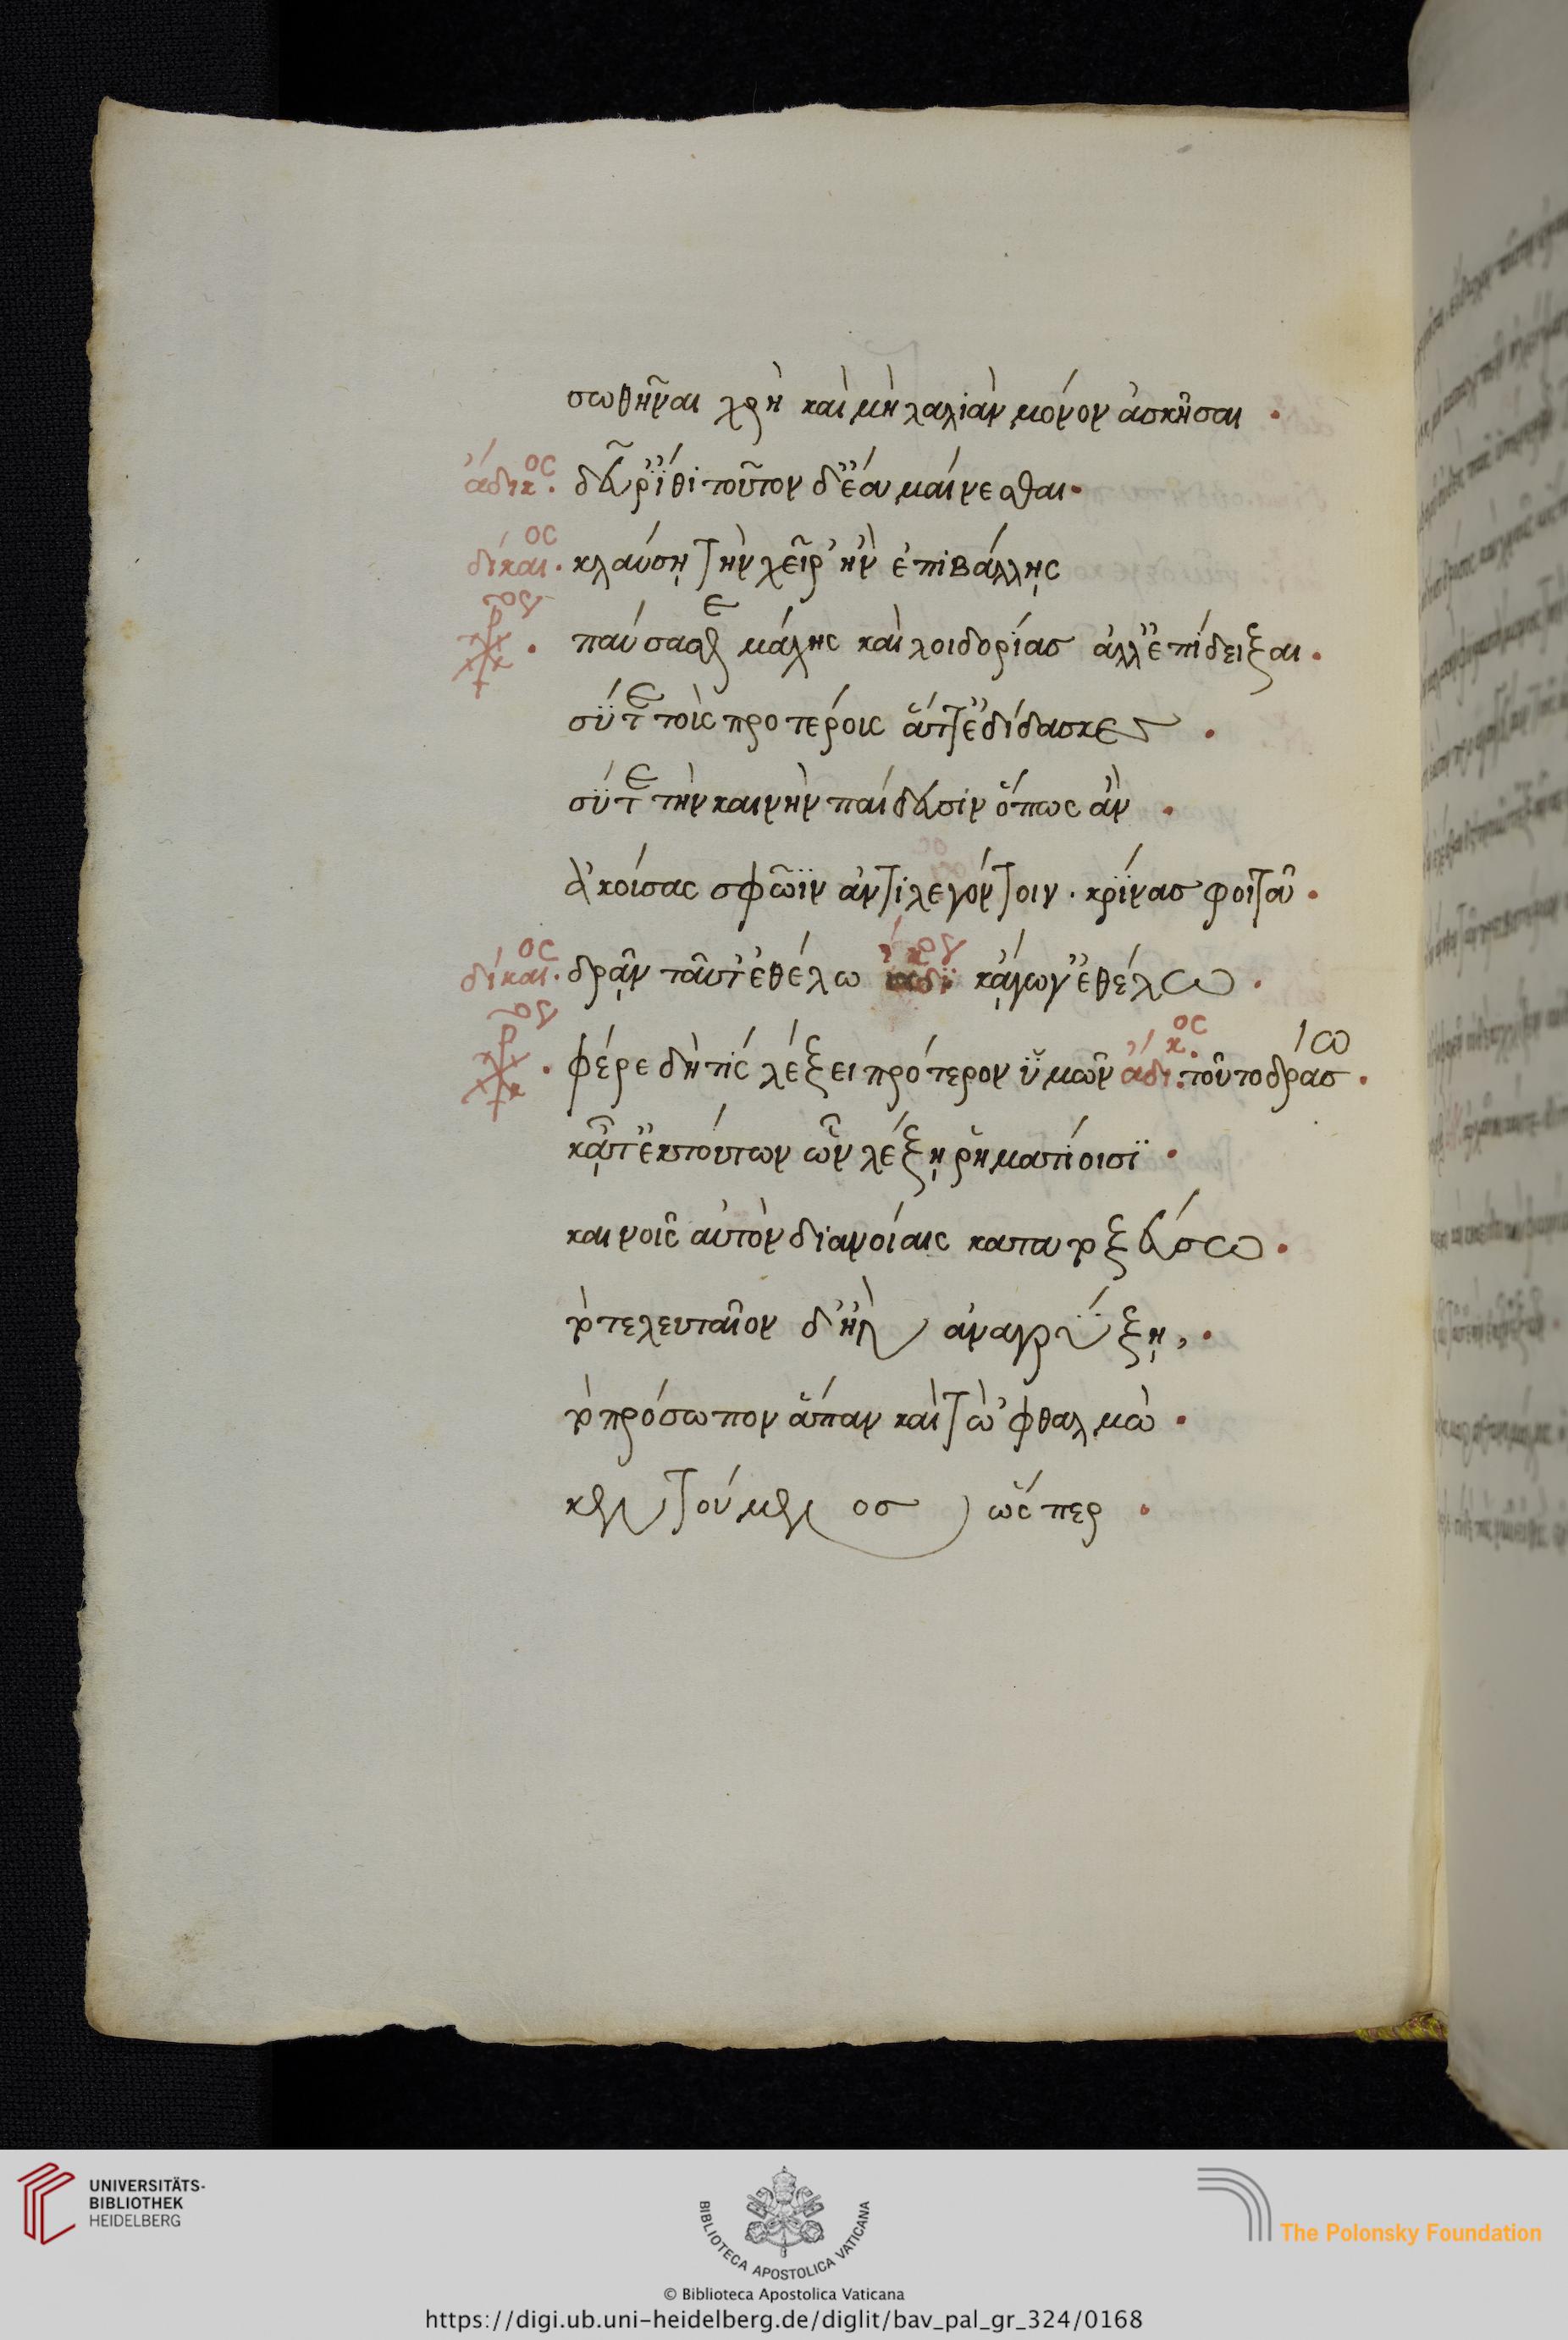 σωθῆναι χρὴ καὶ μὴ λαλιὰν μόνον ἀσκῆσαι ·
ἄδικος. δεῦρ' ἴθι τοῦτον δ' ἔα μαίνεσθαι·
δίκαιος. κλαύσῃ τὴν χεῖρ' ἢν ἐπιβάλλῃς
χορ · παύσασθε μάχης καὶ λοιδορίας ἀλλ' ἐπίδειξαι ·
σύ τε τοὶς προτέροις ἅττ' ἐδίδασκες ·
σύ τε τὴν καινὴν παίδευσιν ὅπως ἂν ·
ἀκούσας σφῶϊν ἀντιλεγόντοιν · κρίνας φοιτᾶ ·
δίκαιος. δρᾶν ταῦτ' ἐθέλω ἄδικ κἄγωγ' ἐθέλω ·
χορ · φέρε δὴ τίς λέξει πρότερον ὑμῶν ἄδικος. τούτῳ δράσω ·
κᾆτ' ἐκ τούτων ὧν λέξῃ ῥηματίοισι ·
καινοῖς αὐτὸν διανοίαις κατατοξεύσω ·
τὸ τελευταῖον δ' ἢν ἀναγρύξῃ, ·
τὸ πρόσωπον ἅπαν καὶ τὼ 'φθαλμὼ ·
κεντούμενος ὥσπερ ·
UNIVERSITÄTS-
BIBLIOTHEK
HEIDELBERG
BIBLIOTECA APOSTOLICA VATICANA
The Polonsky Foundation
© Biblioteca Apostolica Vaticana
https://digi.ub.uni-heidelberg.de/diglit/bav_pal_gr_324/0168